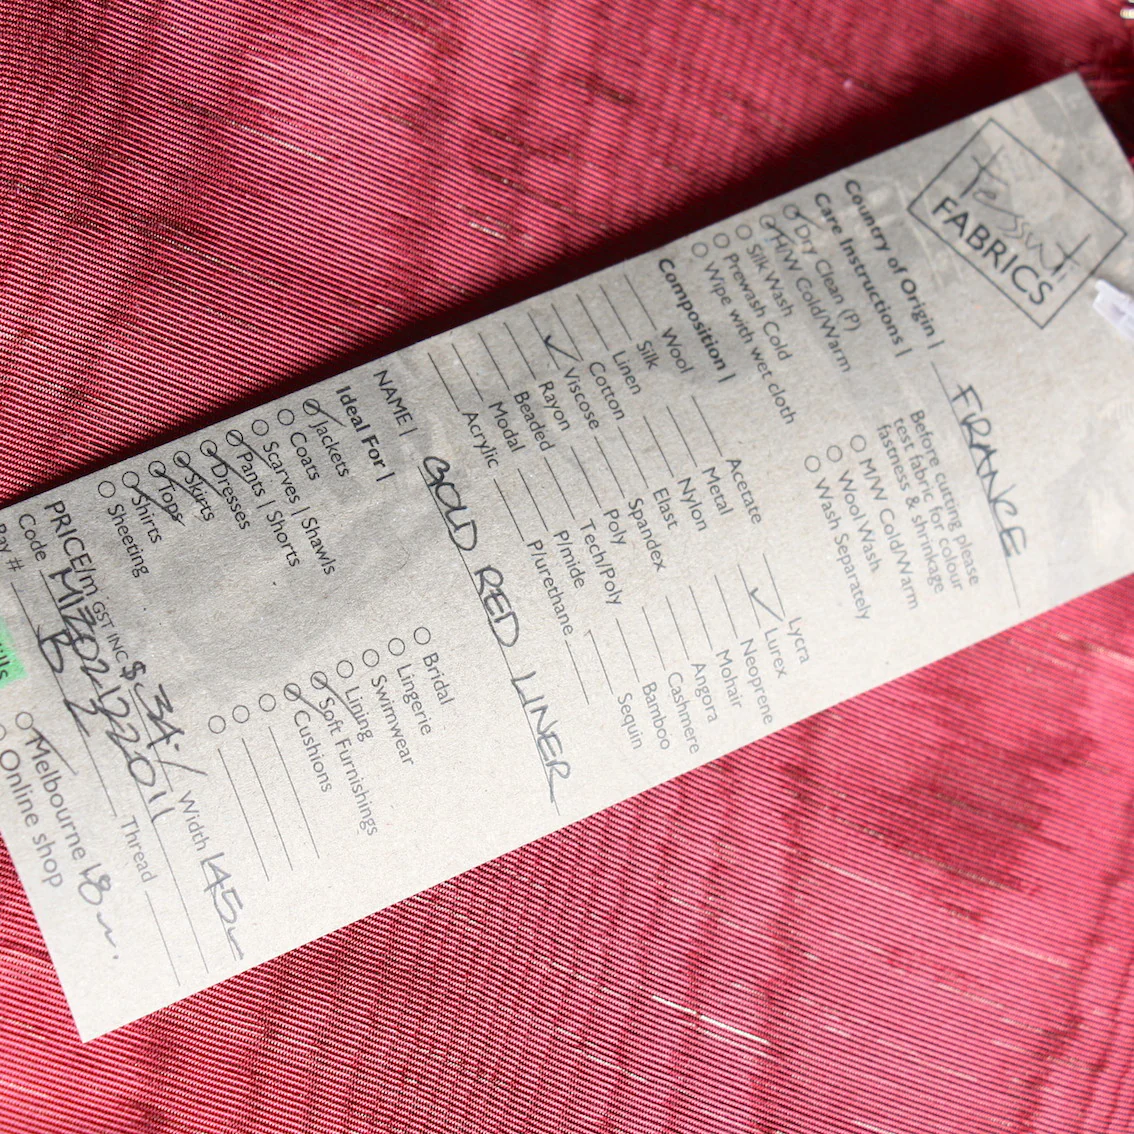 tessuti
FABRICS
Country of Origin | FRANCE
Care Instructions |
Dry Clean (P)
H/W Cold/Warm
Silk Wash
Prewash Cold
Wipe with wet cloth
Before cutting please
test fabric for colour
fastness & shrinkage
M/W Cold/Warm
Wool Wash
Wash Separately
Composition |
Wool
Silk
Linen
Cotton
Viscose
Rayon
Beaded
Modal
Acrylic
Acetate
Metal
Nylon
Elast
Spandex
Poly
Tech/Poly
P/mide
P/urethane
Lycra
Lurex
Neoprene
Mohair
Angora
Cashmere
Bamboo
Sequin
NAME | GOLD RED LINER
Ideal For |
Jackets
Coats
Scarves | Shawls
Pants | Shorts
Dresses
Skirts
Tops
Shirts
Sheeting
Bridal
Lingerie
Swimwear
Lining
Soft Furnishings
Cushions
PRICE/m GST INC $ 34./ Width 145
Code Thread
Bay #
Melbourne
Online shop